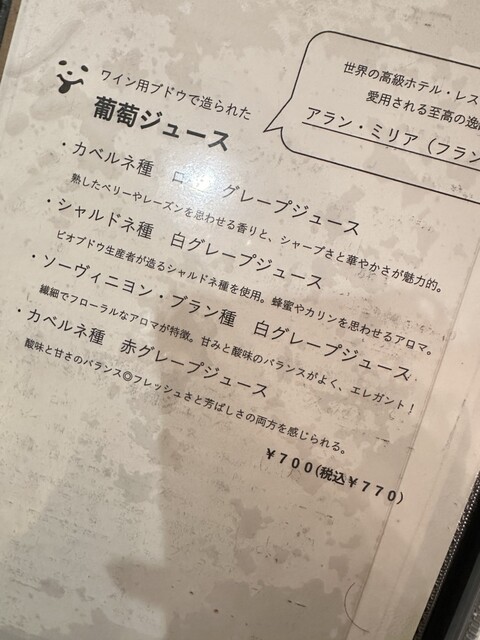 ワイン用ブドウで造られた
葡萄ジュース
世界の高級ホテル・レス
愛用される至高の逸
アラン・ミリア（フラン
・カベルネ種 ロ グレープジュース
熟したベリーやレーズンを思わせる香りと、シャープさと華やかさが魅力的。
・シャルドネ種 白グレープジュース
ビオブドウ生産者が造るシャルドネ種を使用。蜂蜜やカリンを思わせるアロマ。
・ソーヴィニヨン・ブラン種 白グレープジュース
繊細でフローラルなアロマが特徴。甘みと酸味のバランスがよく、エレガント！
・カベルネ種 赤グレープジュース
酸味と甘さのバランス◎フレッシュさと芳ばしさの両方を感じられる。
￥７００(税込￥７７０)